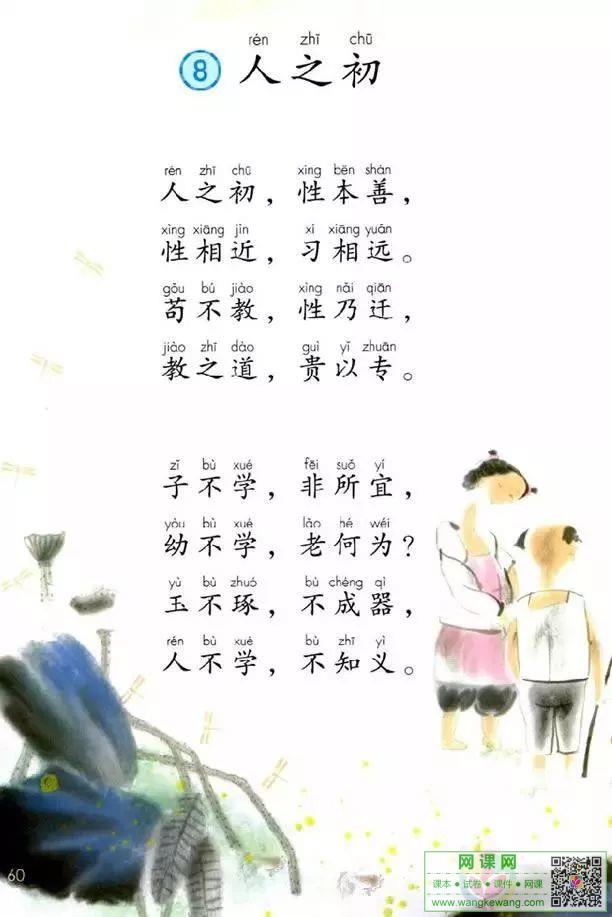 rén zhī chū
8 人之初
rén zhī chū xìng běn shàn
人之初，性本善，
xìng xiāng jìn xí xiāng yuǎn
性相近，习相远。
gǒu bú jiào xìng nǎi qiān
苟不教，性乃迁，
jiào zhī dào guì yǐ zhuān
教之道，贵以专。
zǐ bù xué fēi suǒ yí
子不学，非所宜，
yòu bù xué lǎo hé wéi
幼不学，老何为？
yù bù zhuó bù chéng qì
玉不琢，不成器，
rén bù xué bù zhī yì
人不学，不知义。
60
网课网
课本·试卷·课件·网课
www.wangkewang.com